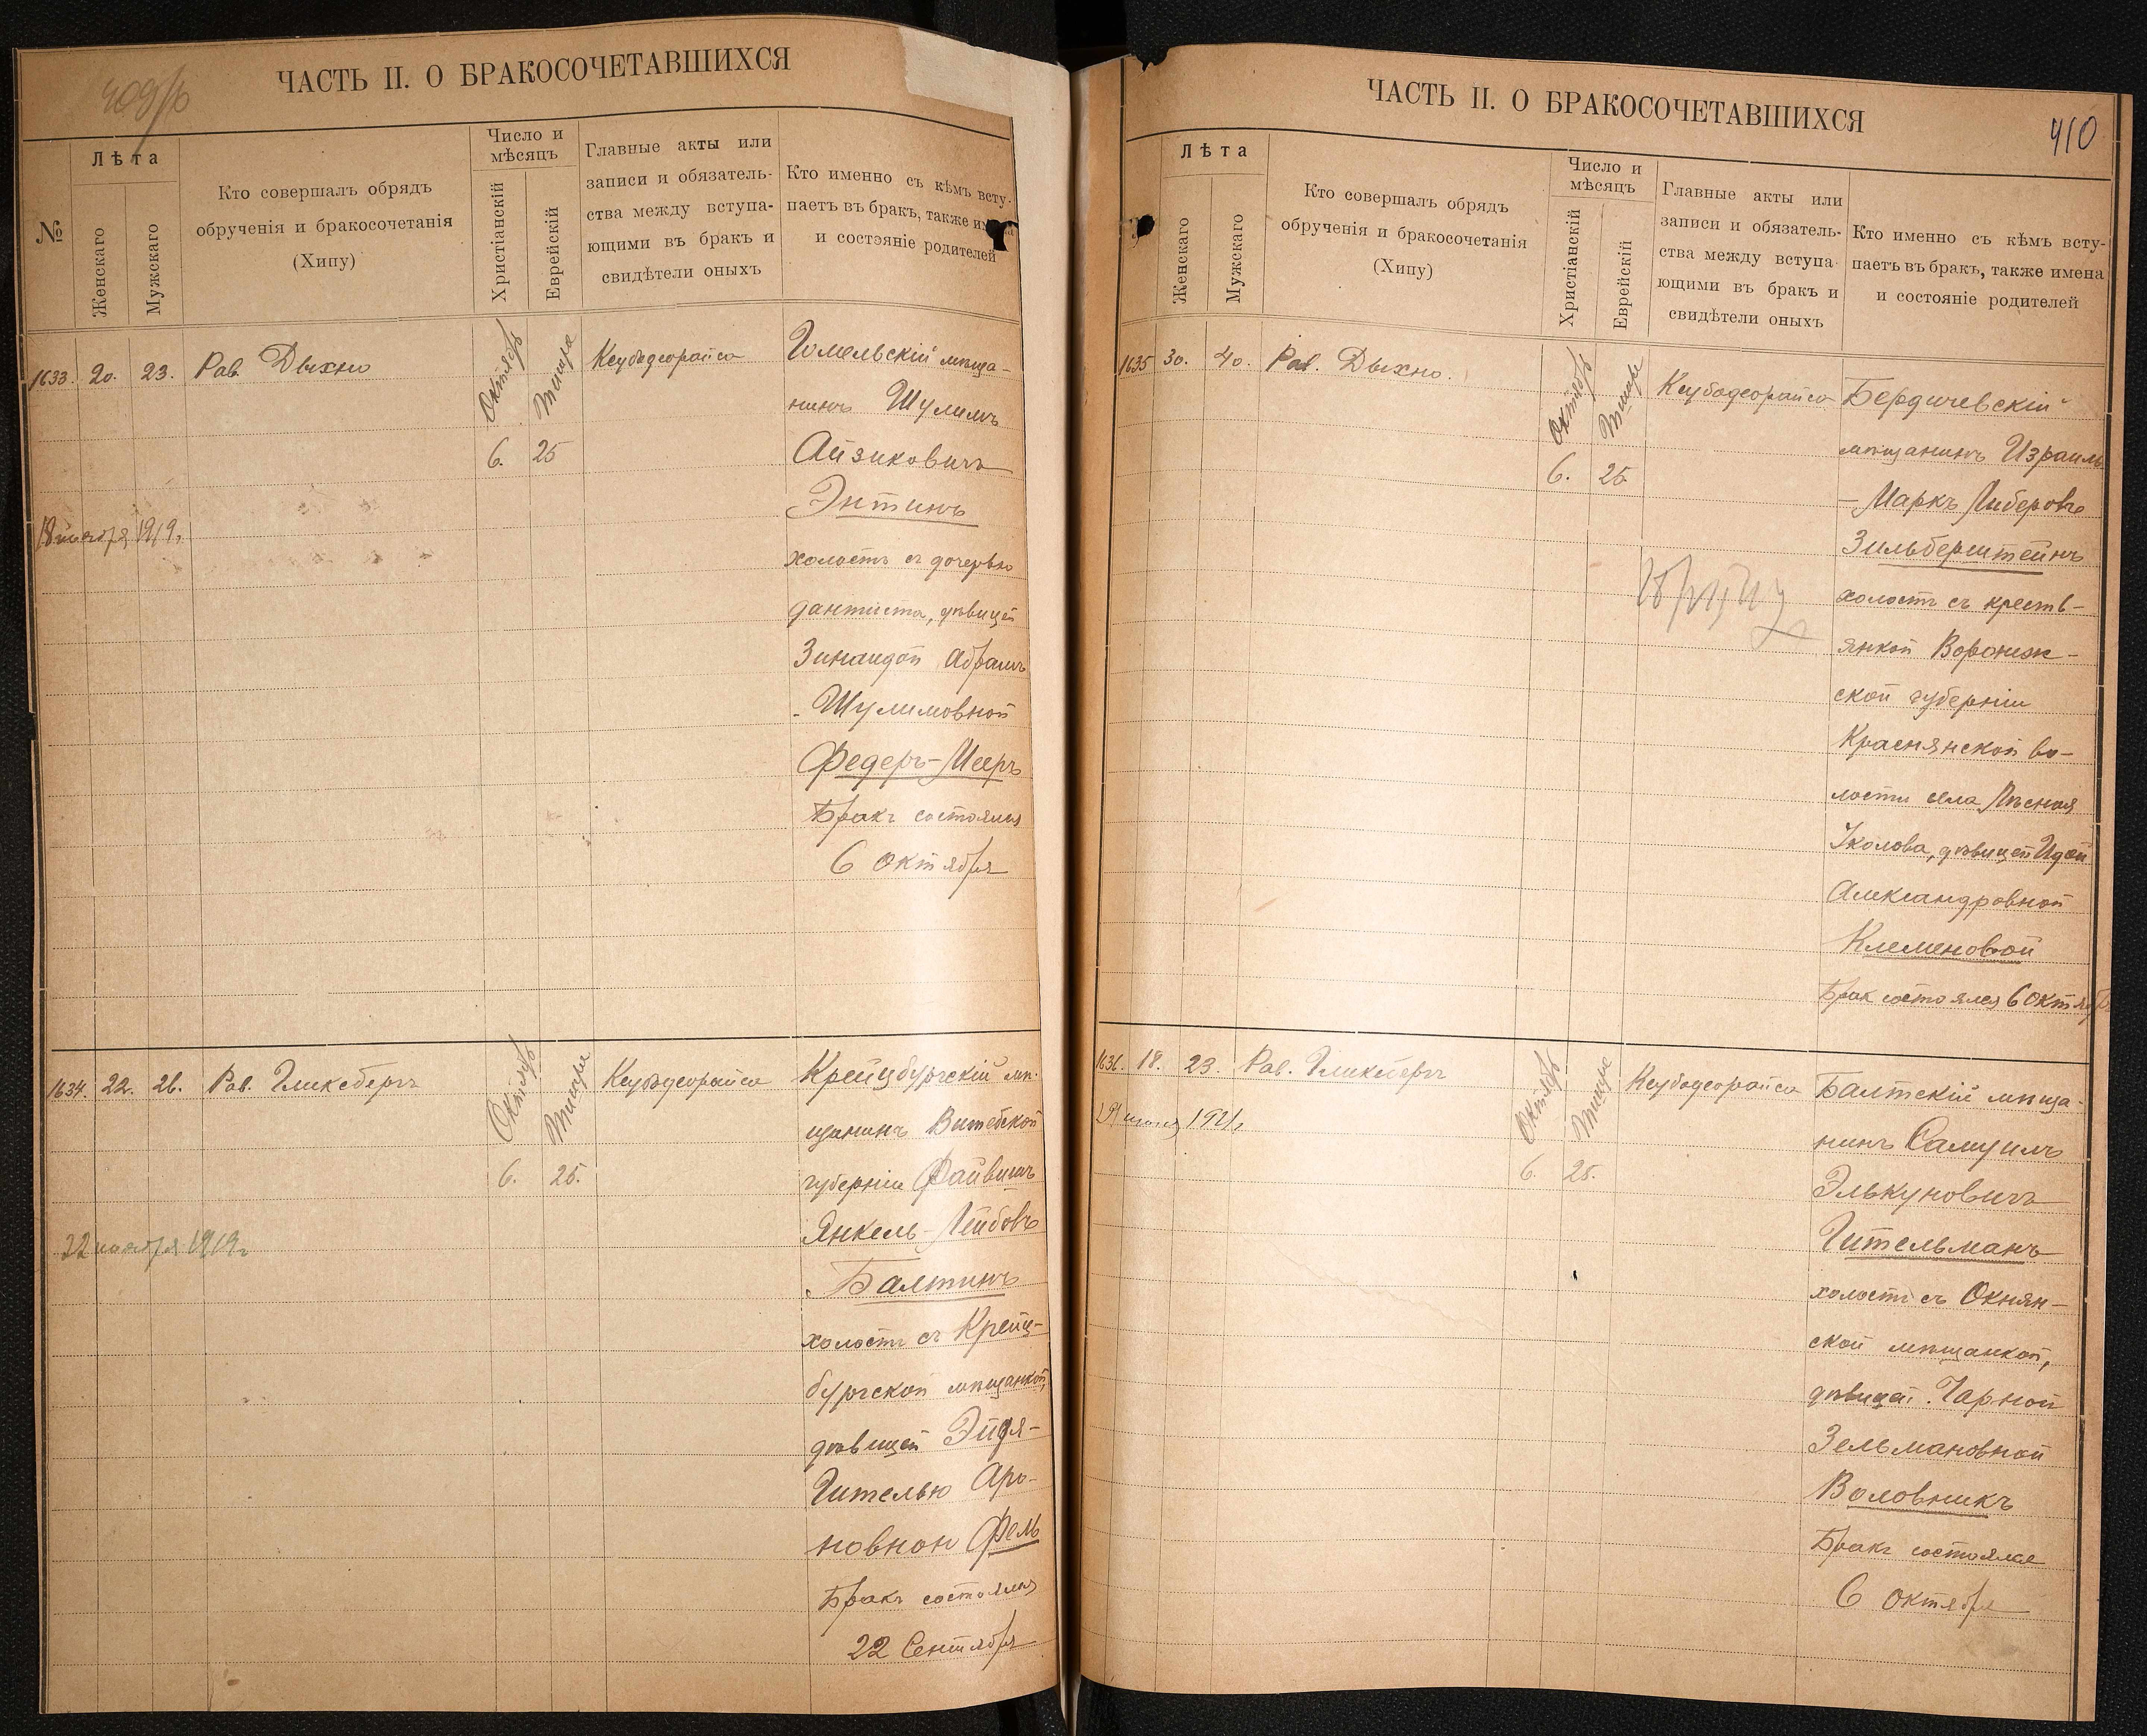 ЧАСТЬ II. О БРАКОСОЧЕТАВШИХСЯ
№
Лѣта
Женскаго
Мужскаго
Кто совершалъ обрядъ
обрученія и бракосочетанія
(Хипу)
Число и
мѣсяцъ
Христіанскій
Еврейскій
Главные акты или
записи и обязатель-
ства между вступа-
ющими въ бракъ и
свидѣтели оныхъ
Кто именно съ кѣмъ всту-
паетъ въ бракъ, также имена
и состояніе родителей
1633. 20. 23. Рав. Дыхно
Октябрь
Тишре
6. 25
Ксубадеорайса
Гомельскій мѣща-
нинъ Шулимъ
Айзиковичъ
Энтинъ
холостъ съ дочерью
дантиста, дѣвицей
Зинаидой Абрамъ
-Шулимовной
Федеръ-Мееръ
Бракъ состоялся
6 Октября
18 ноября 1919г.
1634. 22. 26. Рав. Гликсбергъ
Октябрь
Тишре
6. 25.
Ксубадеорайса
Крейцбургскій мѣ-
щанинъ Витебской
губерніи Файвишъ
Янкель-Лейбовъ
Балтинъ
холостъ съ Крейц-
бургской мѣщанкой,
дѣвицей Эйдя-
Гителью Аро-
новной Фель
Бракъ состоялся
22 Сентября
22 ноября 1919г
ЧАСТЬ II. О БРАКОСОЧЕТАВШИХСЯ
410
Лѣта
Женскаго
Мужскаго
Кто совершалъ обрядъ
обрученія и бракосочетанія
(Хипу)
Число и
мѣсяцъ
Христіанскій
Еврейскій
Главные акты или
записи и обязатель-
ства между вступа-
ющими въ бракъ и
свидѣтели оныхъ
Кто именно съ кѣмъ всту-
паетъ въ бракъ, также имена
и состояніе родителей
1635 30. 40. Рав. Дыхно.
Октябрь
Тишре
6. 25
Ксубадеорайса
Бердичевскій
мѣщанинъ Израиль
-Маркъ Либеровъ
Зильберштейнъ
холостъ съ кресть-
янкой Воронеж-
ской губерніи
Краснянской во-
лости села Лѣсная
Уколова, дѣвицей Идой
Александровной
Клеменовой
Брак состоялся 6 Октября
1636. 18. 23. Рав. Гликсбергъ
Октябрь
Тишре
6. 25.
Ксубадеорайса
Балтскій мѣща-
нинъ Самуилъ
Элькуновичъ
Гительманъ
холостъ съ Окнян-
ской мѣщанкой,
дѣвицей Чарной
Зельмановной
Воловникъ
Бракъ состоялся
6 Октября
1921г.